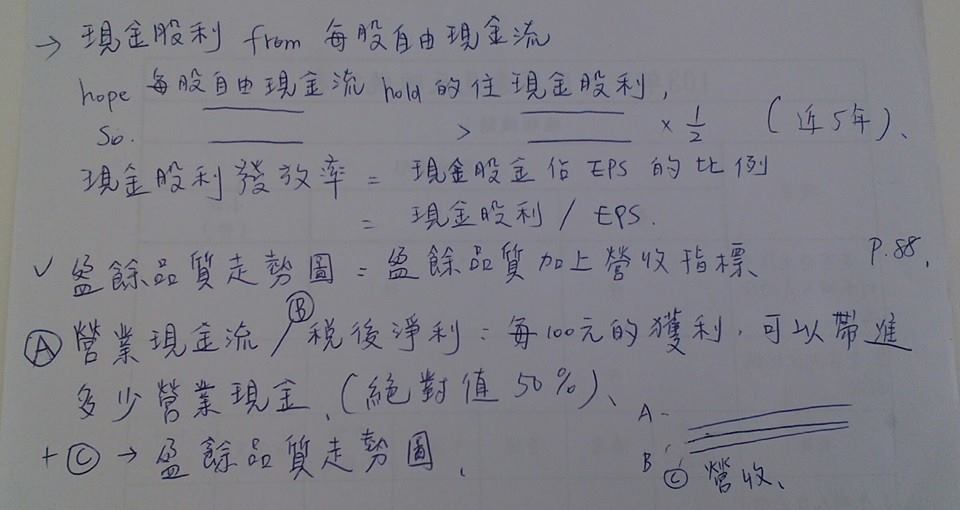 → 現金股利 from 每股自由現金流
hope 每股自由現金流 hold 的住現金股利,
So. > × 1/2 (近5年)、
現金股利發放率 = 現金股金佔 EPS 的比例
= 現金股利 / EPS.
✓ 盈餘品質走勢圖 = 盈餘品質加上營收指標、 P.88,
Ⓐ 營業現金流 / Ⓑ 稅後淨利 : 每100元的獲利, 可以帶進
多少營業現金、(絕對值 50%)、
+ Ⓒ → 盈餘品質走勢圖、
A -
B - Ⓒ 營收、